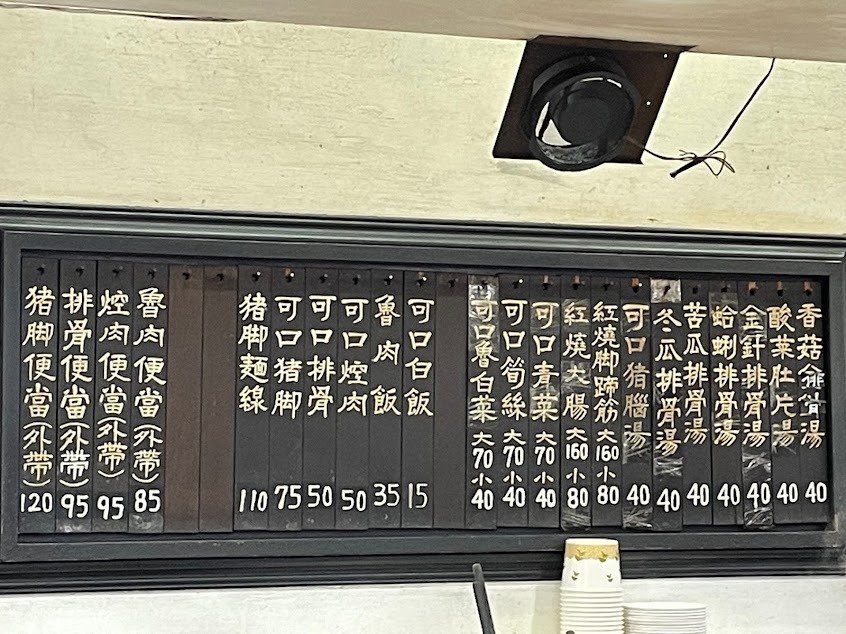 香菇排骨湯 40
酸菜肚片湯 40
金針排骨湯 40
蛤蜊排骨湯 40
苦瓜排骨湯 40
冬瓜排骨湯 40
可口猪腦湯 40
紅燒脚蹄筋 大160 小80
紅燒大腸 大160 小80
可口青菜 大70 小40
可口筍絲 大70 小40
可口魯白菜 大70 小40
可口白飯 15
魯肉飯 35
可口焢肉 50
可口排骨 50
可口猪脚 75
猪脚麵線 110
魯肉便當(外帶) 85
焢肉便當(外帶) 95
排骨便當(外帶) 95
猪脚便當(外帶) 120